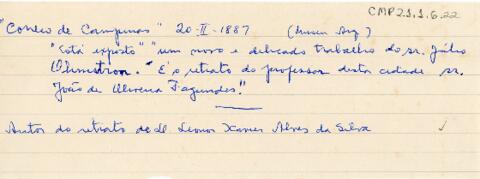 CMP2.1.1.6.22
"Correio de Campinas" 20-II-1887 (Museu Arq)
"Está exposto" "um novo e delicado trabalho do sr. Júlio
"É o retrato do professor desta cidade sr.
João de Oliveira Fagundes."
Autor do retrato de d. Leonor Xavier Alves da Silva